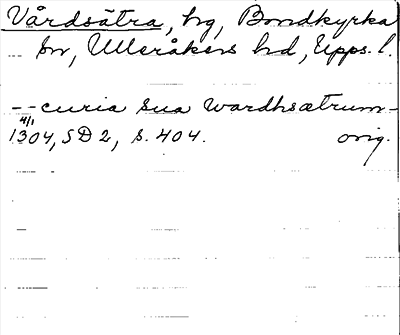 Vårdsätra, hg, Bondkyrka
sn, Ulleråkers hd, Upps. l.
-- curia sua wardhsætrum -
4/1
1304, SD 2, s. 404. orig.